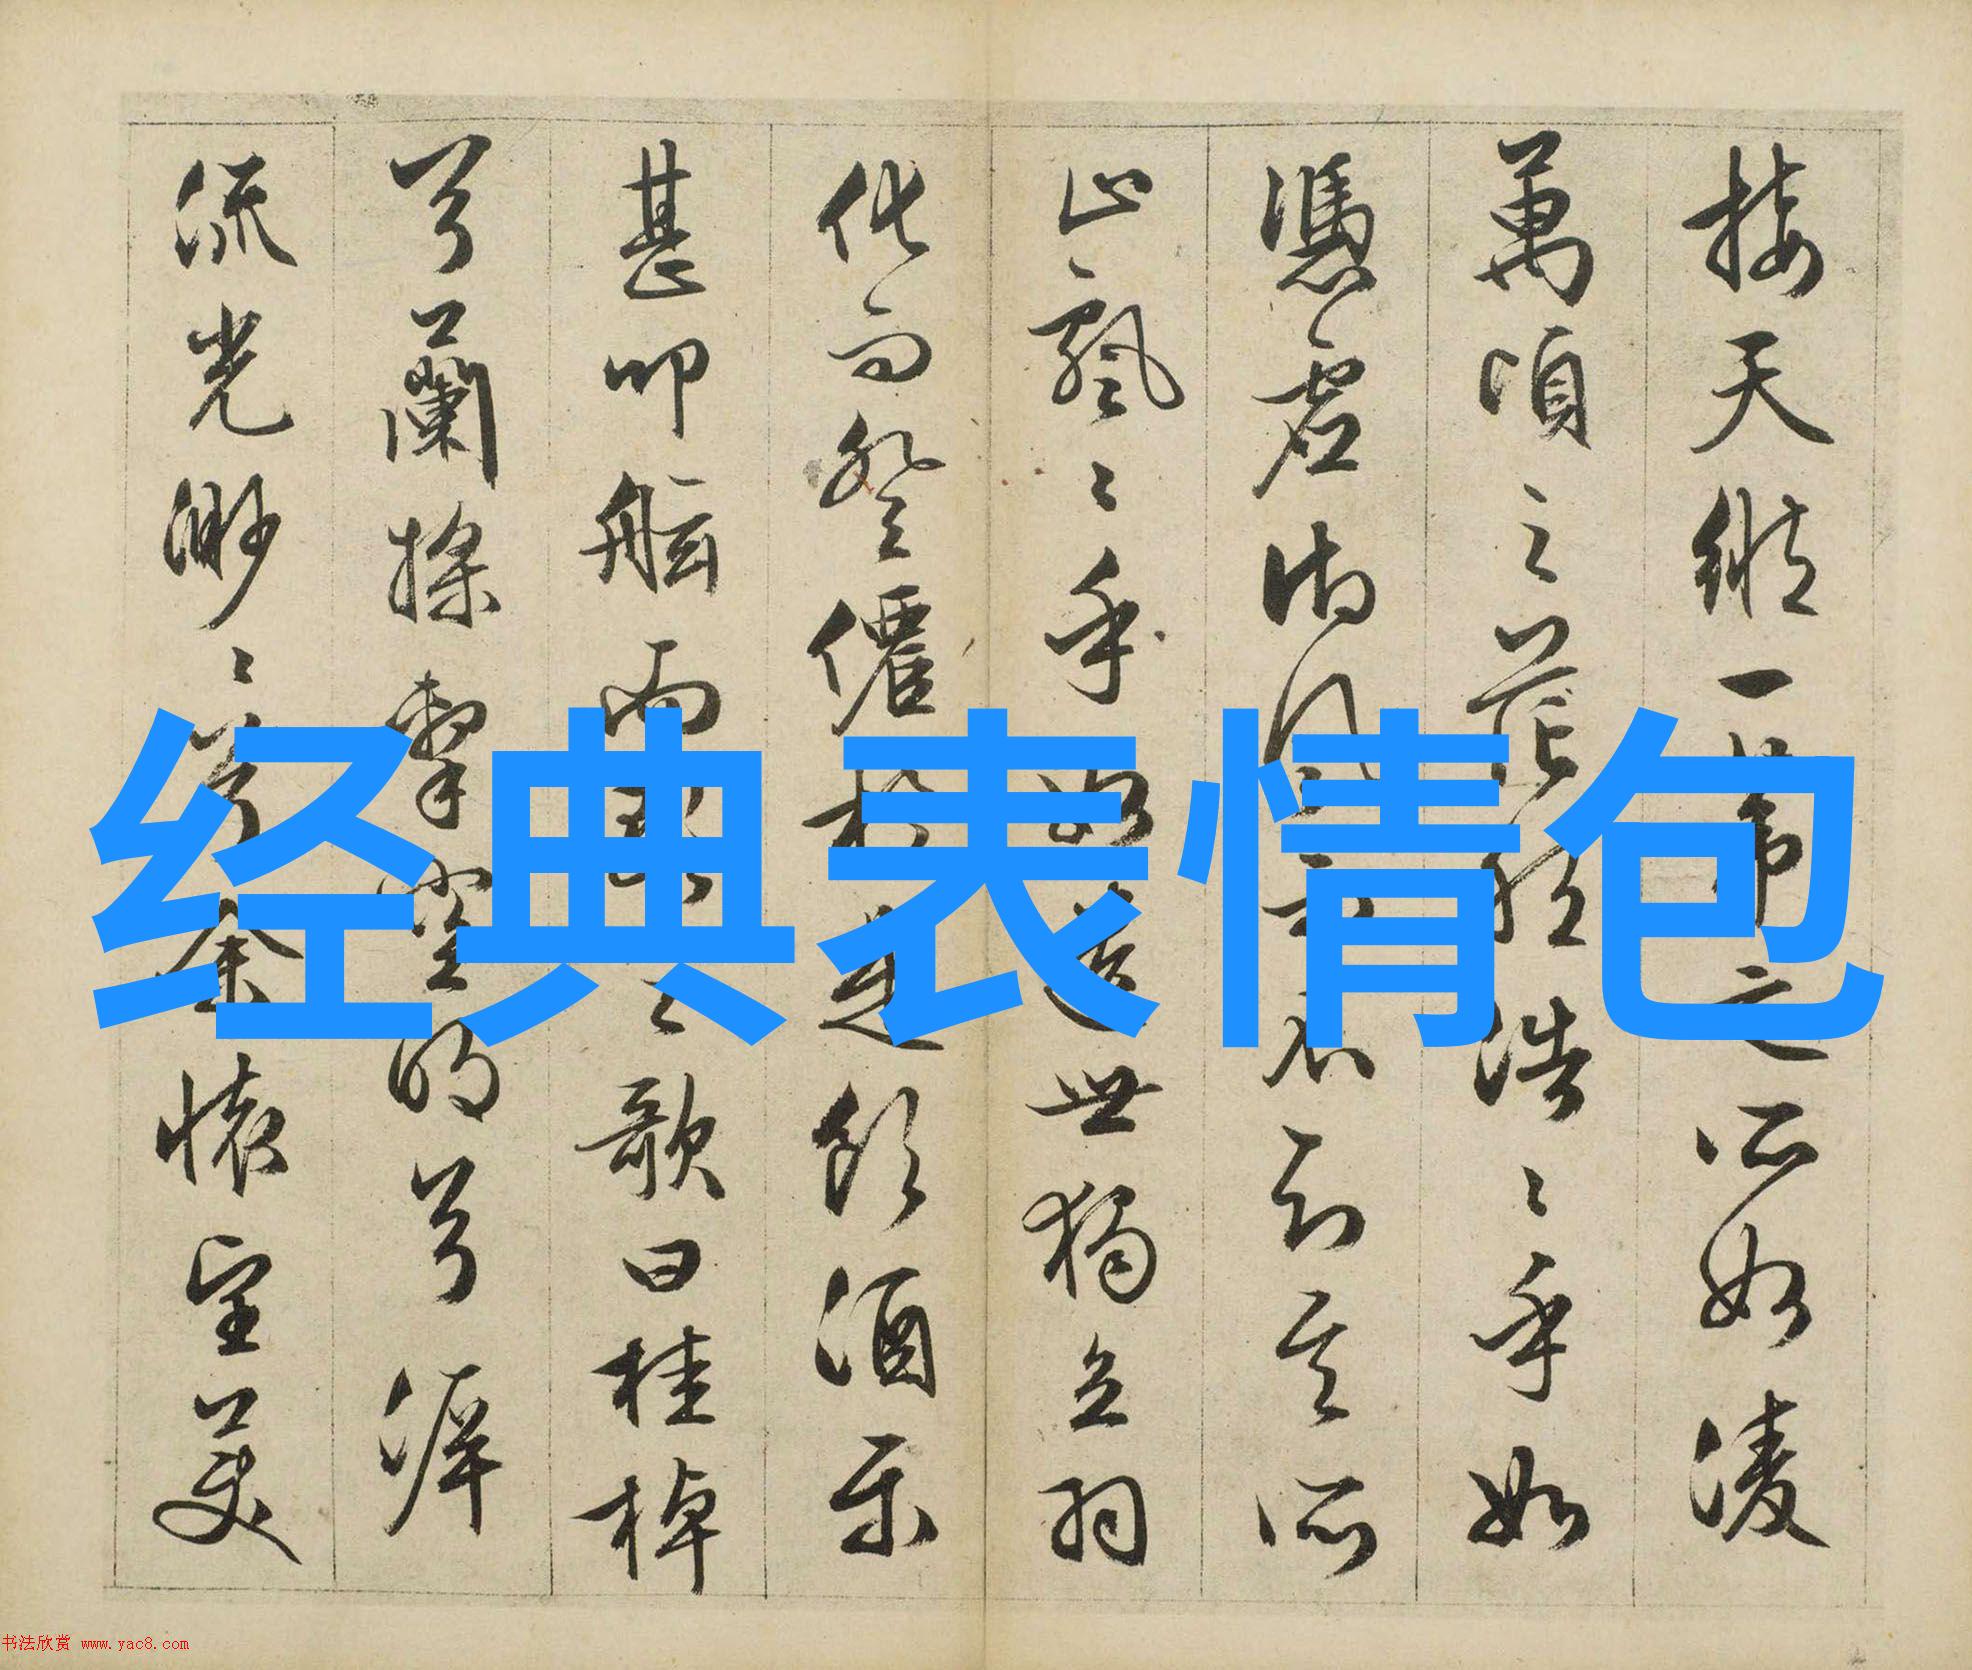 接天縱一葦之所如凌
萬頃之茫然浩〻乎如
憑虛御風而不知其所
止飄〻乎如遺世獨立羽
化而登僊於是飲酒樂
甚叩舷而歌之歌曰桂棹
兮蘭槳擊空明兮泝
流光渺〻兮余懷望美
经典表情包
书法欣赏 www.yac8.com